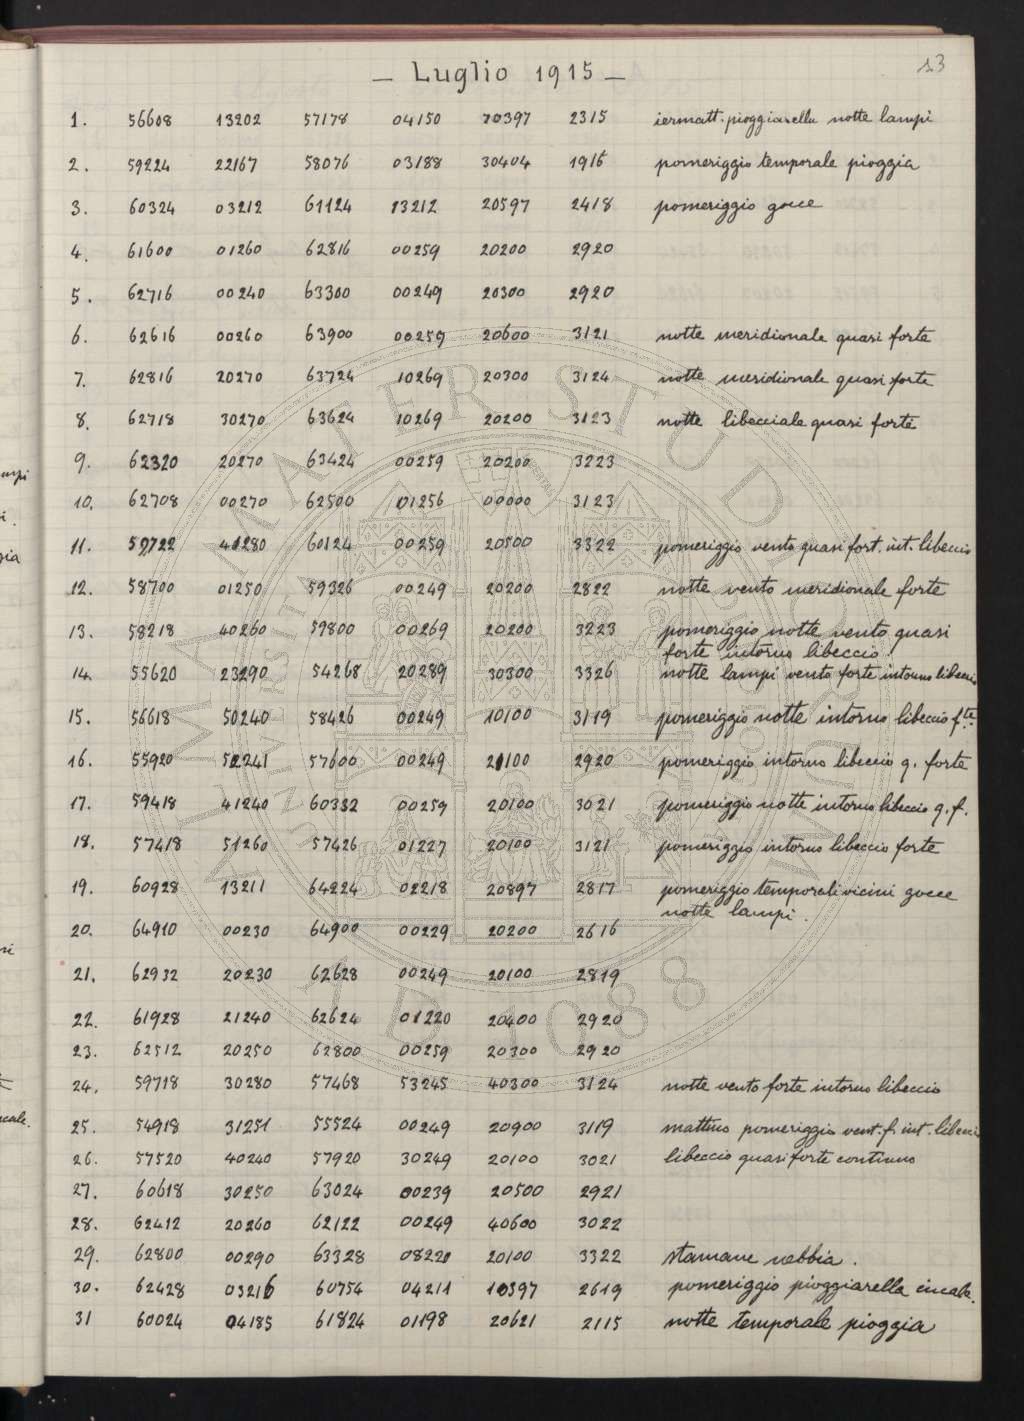 13
— Luglio 1915 —
1. 56608 13202 57178 04150 70397 2315 iermatt. pioggiarella notte lampi
2. 59224 22167 58076 03188 30404 1916 pomeriggio temporale pioggia
3. 60324 03212 61124 13212 20597 2418 pomeriggio gocce
4. 61600 01260 62816 00259 20200 2920
5. 62716 00240 63300 00249 20300 2920
6. 62616 00260 63900 00259 20600 3121 notte meridionale quasi forte
7. 62816 20270 63724 10269 20300 3124 notte meridionale quasi forte
8. 62718 30270 63624 10269 20200 3123 notte libecciale quasi forte
9. 62320 20270 63424 00259 20200 3223
10. 62708 00270 62500 01256 00000 3123
11. 59722 41280 60124 00259 20500 3322 pomeriggio vento quasi fort. int. libeccio
12. 58700 01250 59326 00249 20200 2822 notte vento meridionale forte
13. 58218 40260 59800 00269 20200 3223 pomeriggio notte vento quasi
forte intorno libeccio
14. 55620 23290 54268 20289 30300 3326 notte lampi vento forte intorno libeccio
15. 56618 50240 58426 00249 10100 3119 pomeriggio notte intorno libeccio fte
16. 55920 52241 57600 00249 20100 2920 pomeriggio intorno libeccio q. forte
17. 59418 41240 60332 00259 20100 3021 pomeriggio notte intorno libeccio q. f.
18. 57418 51260 57426 01227 20100 3121 pomeriggio intorno libeccio forte
19. 60928 13211 64224 02218 20897 2817 pomeriggio temporali vicini gocce
notte lampi.
20. 64910 00230 64900 00229 20200 2616
21. 62932 20230 62628 00249 20100 2819
22. 61928 21240 62624 01220 20400 2920
23. 62512 20250 62800 00259 20300 2920
24. 59718 30280 57468 53245 40300 3124 notte vento forte intorno libeccio
25. 54918 31251 55524 00249 20900 3119 mattino pomeriggio vent. f. int. libeccio
26. 57520 40240 57920 30249 20100 3021 libeccio quasi forte continuo
27. 60618 30250 63024 00239 20500 2921
28. 62412 20260 62122 00249 40600 3022
29. 62800 00290 63328 08220 20100 3322 stamane nebbia.
30. 62428 03216 60754 04211 10397 2619 pomeriggio pioggiarella
31 60024 04185 61824 01198 20621 2115 notte temporale pioggia
ALMA MATER STUDIORUM
A.D. 1088